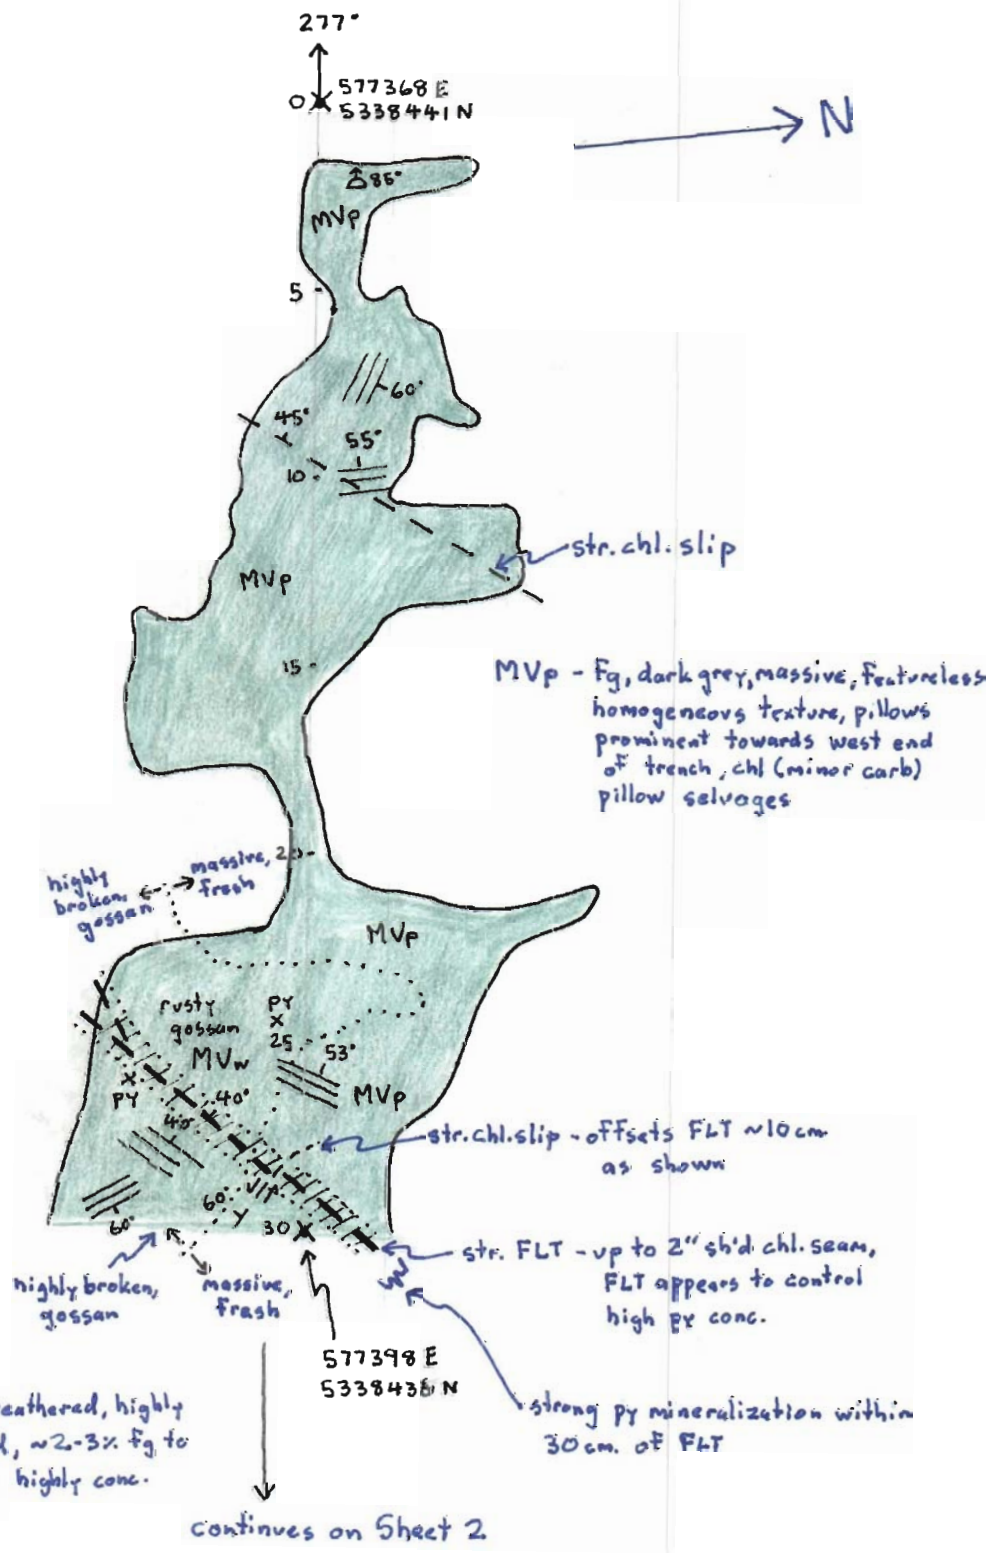 277°
577368 E
0
5338441 N
N
85°
MVp
5
60°
45°
55°
10
str. chl. slip
MVp
15
MVp - Fg, dark grey, massive, featureless
homogeneous texture, pillows
prominent towards west end
of trench, chl (minor carb)
pillow selvages
20
massive,
fresh
highly
broken,
gossan
MVp
rusty
gossan
PY
25
53°
MVw
MVp
PY
40°
40°
str. chl. slip - offsets FLT ~10cm
as shown
60°
60°
30
str. FLT - up to 2" sh'd chl. seam,
FLT appears to control
high py conc.
highly broken,
gossan
massive,
fresh
577398 E
533843 N
strong py mineralization within
30 cm. of FLT
eathered, highly
, ~2-3% fg to
highly conc.
continues on Sheet 2